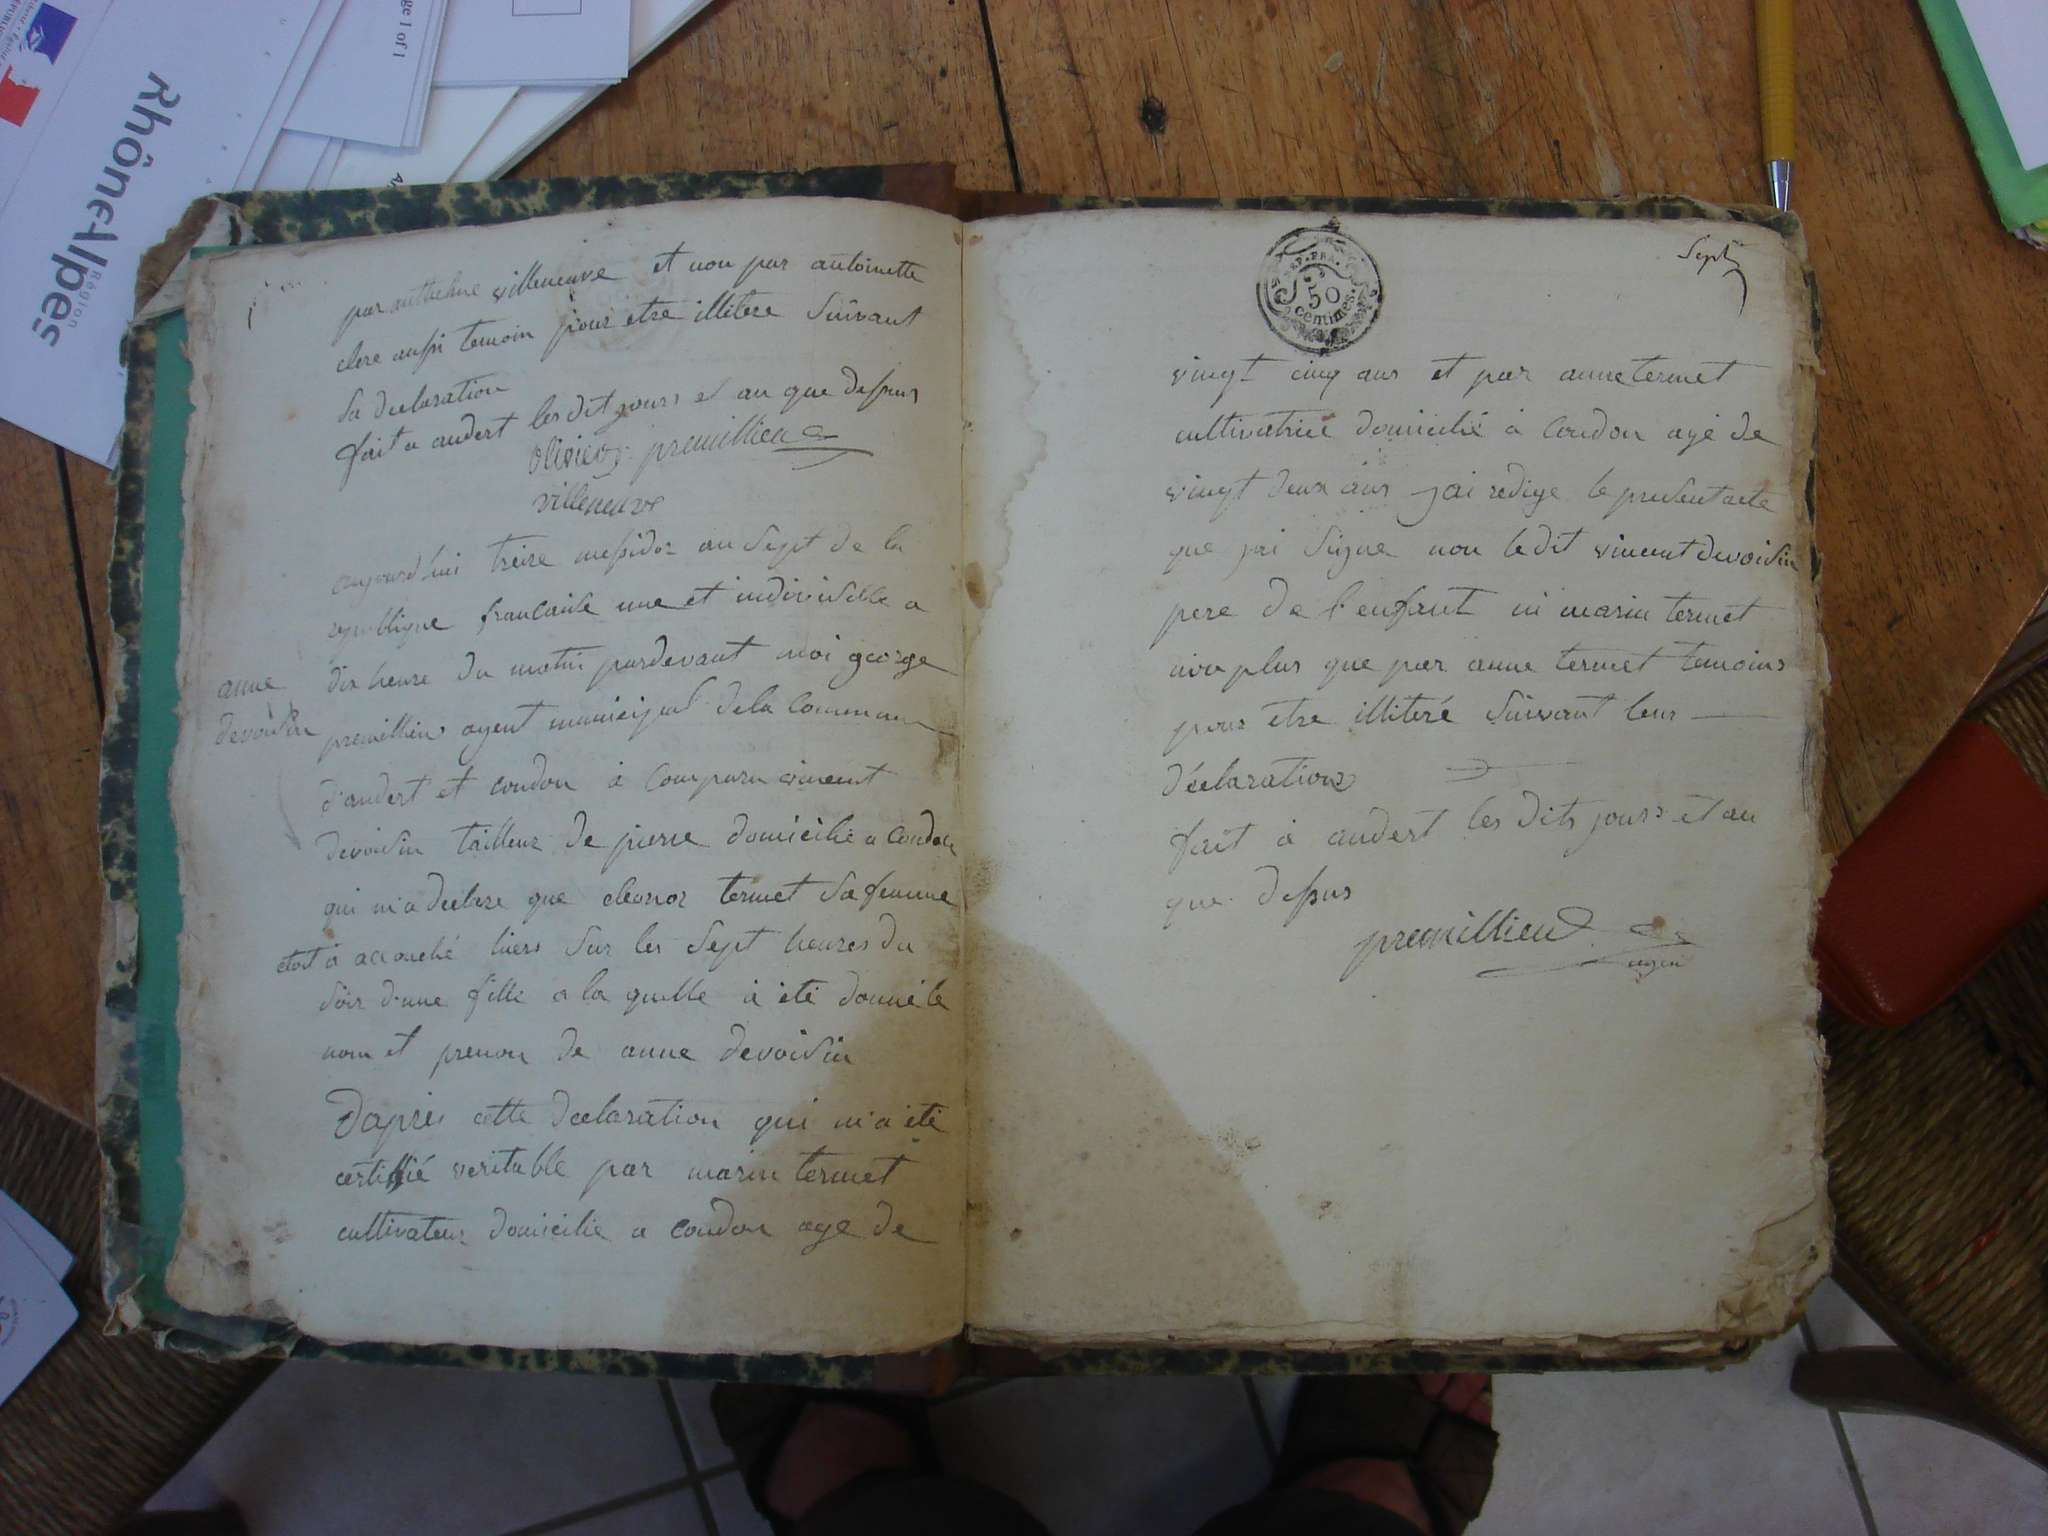 Rhône-Alpes
Région
ge 1 of 1
par anthelme villeneuve et non par antoinette
clere aussi temoin pour etre illitere suivant
sa declaration
fait a andert les dit jours et an que dessus
olivier premillieu
villeneuve
aujourd'hui treize messidor an sept de la
republique francaise une et indivisible a
dix heure du matin pardevant moi george
anne
devoisin
premillieu agent municipal de la commune
d'andert et condon à comparu vincent
devoisin tailleur de pierre domicilié a condon
qui m'a declare que eleonor termet sa femme
etoit à accouché hiers sur les sept heures du
soir d'une fille a la quelle à été donné le
nom et prenon de anne devoisin
Dapres cette declaration qui m'a été
certiffié veritable par marin termet
cultivateur domicilie a condon age de
REP. FRA.
50
centimes.
Sept
vingt cinq ans et par anne termet
cultivatrice domicilié à condon agé de
vingt deux ans jai redige le present acte
que jai signe non le dit vincent devoisin
pere de l'enfant ni marin termet
non plus que par anne termet temoins
pour etre illiteré suivant leur
déclaration
fait à andert les dits jours et an
que dessus
premillieu
agen